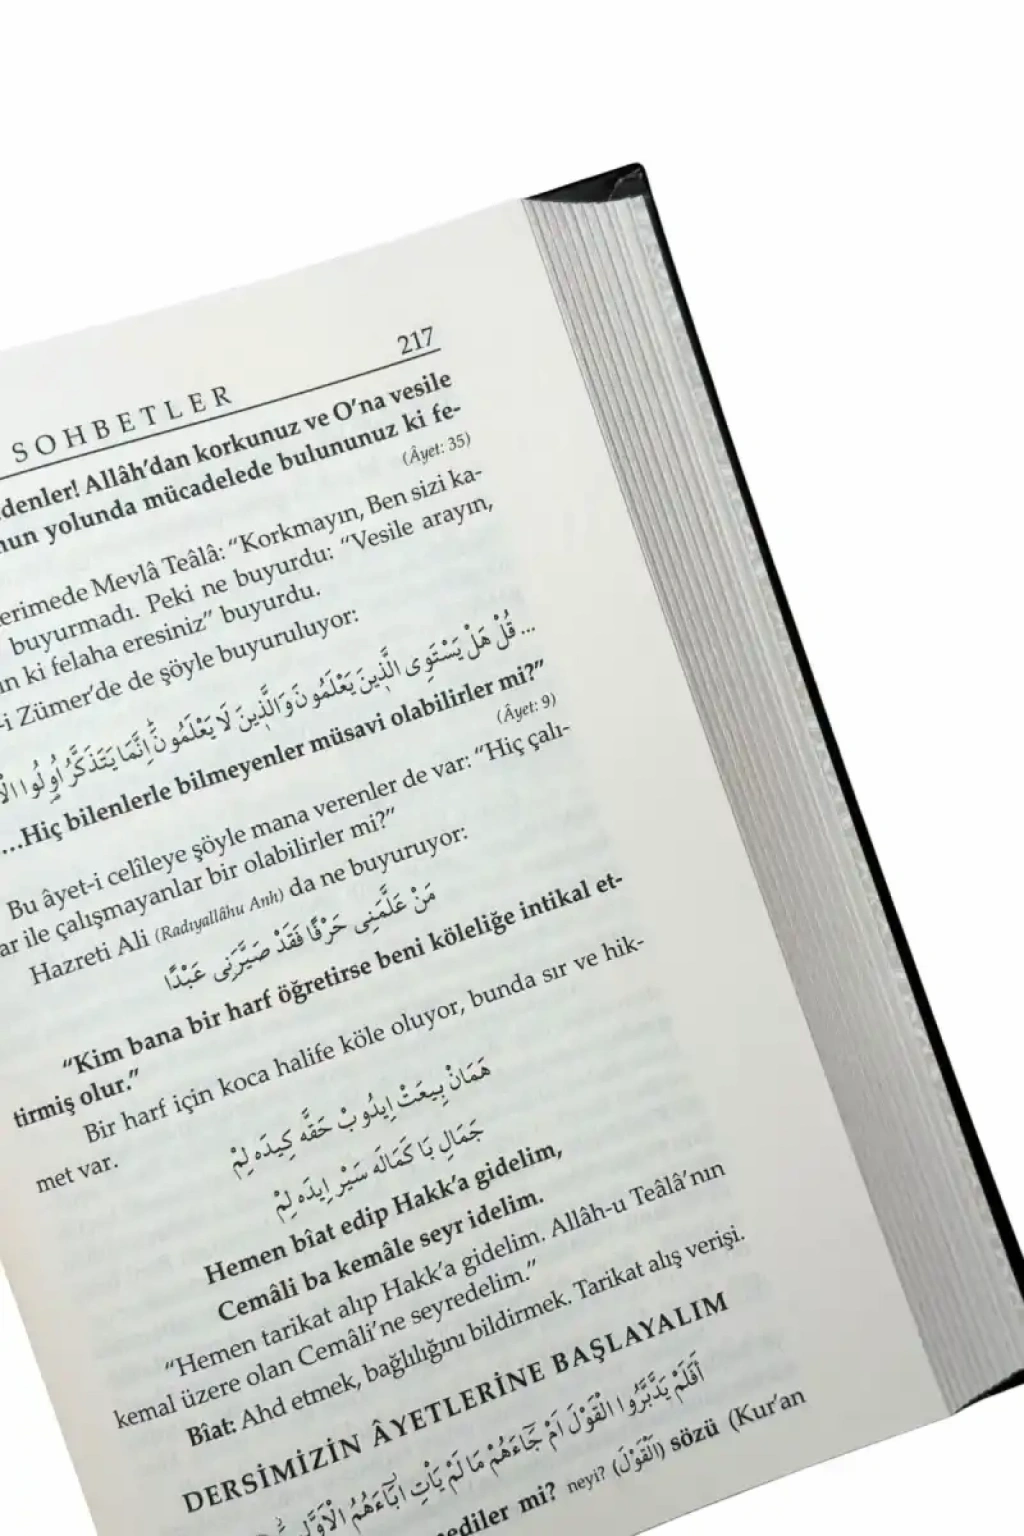 SOHBETLER 217
denler! Allâh’dan korkunuz ve O’na vesile
nun yolunda mücadelede bulununuz ki fe-
(Âyet: 35)
erimede Mevlâ Teâlâ: “Korkmayın, Ben sizi ka-
buyurmadı. Peki ne buyurdu: “Vesile arayın,
ki felaha eresiniz” buyurdu.
-i Zümer’de de şöyle buyuruluyor:
... قُلْ هَلْ يَسْتَوِى الَّذِينَ يَعْلَمُونَ وَالَّذِينَ لَا يَعْلَمُونَ إِنَّمَا يَتَذَكَّرُ أُولُوا
...Hiç bilenlerle bilmeyenler müsavi olabilirler mi?”
(Âyet: 9)
Bu âyet-i celîleye şöyle mana verenler de var: “Hiç çalı-
ar ile çalışmayanlar bir olabilirler mi?”
Hazreti Ali (Radıyallâhu Anh) da ne buyuruyor:
مَنْ عَلَّمَنِى حَرْفًا فَقَدْ صَيَّرَنِى عَبْدًا
“Kim bana bir harf öğretirse beni köleliğe intikal et-
tirmiş olur.”
Bir harf için koca halife köle oluyor, bunda sır ve hik-
met var.
هَمَانْ بِيعَتْ اِيدُوبْ حَقَّه كِيدَه لِمْ
جَمَالِ بَا كَمَالَه سَيْر اِيدَه لِمْ
Hemen bîat edip Hakk’a gidelim,
Cemâli ba kemâle seyr idelim.
“Hemen tarikat alıp Hakk’a gidelim. Allâh-u Teâlâ’nın
kemal üzere olan Cemâli’ne seyredelim.”
Bîat: Ahd etmek, bağlılığını bildirmek. Tarikat alış verişi.
DERSİMİZİN ÂYETLERİNE BAŞLAYALIM
أَفَلَمْ يَدَّبَّرُوا الْقَوْلَ أَمْ جَاءَهُمْ مَا لَمْ يَأْتِ آبَاءَهُمُ الْأَوَّلِينَ
mediler mi? neyi? (اَلْقَوْلَ) sözü (Kur’an